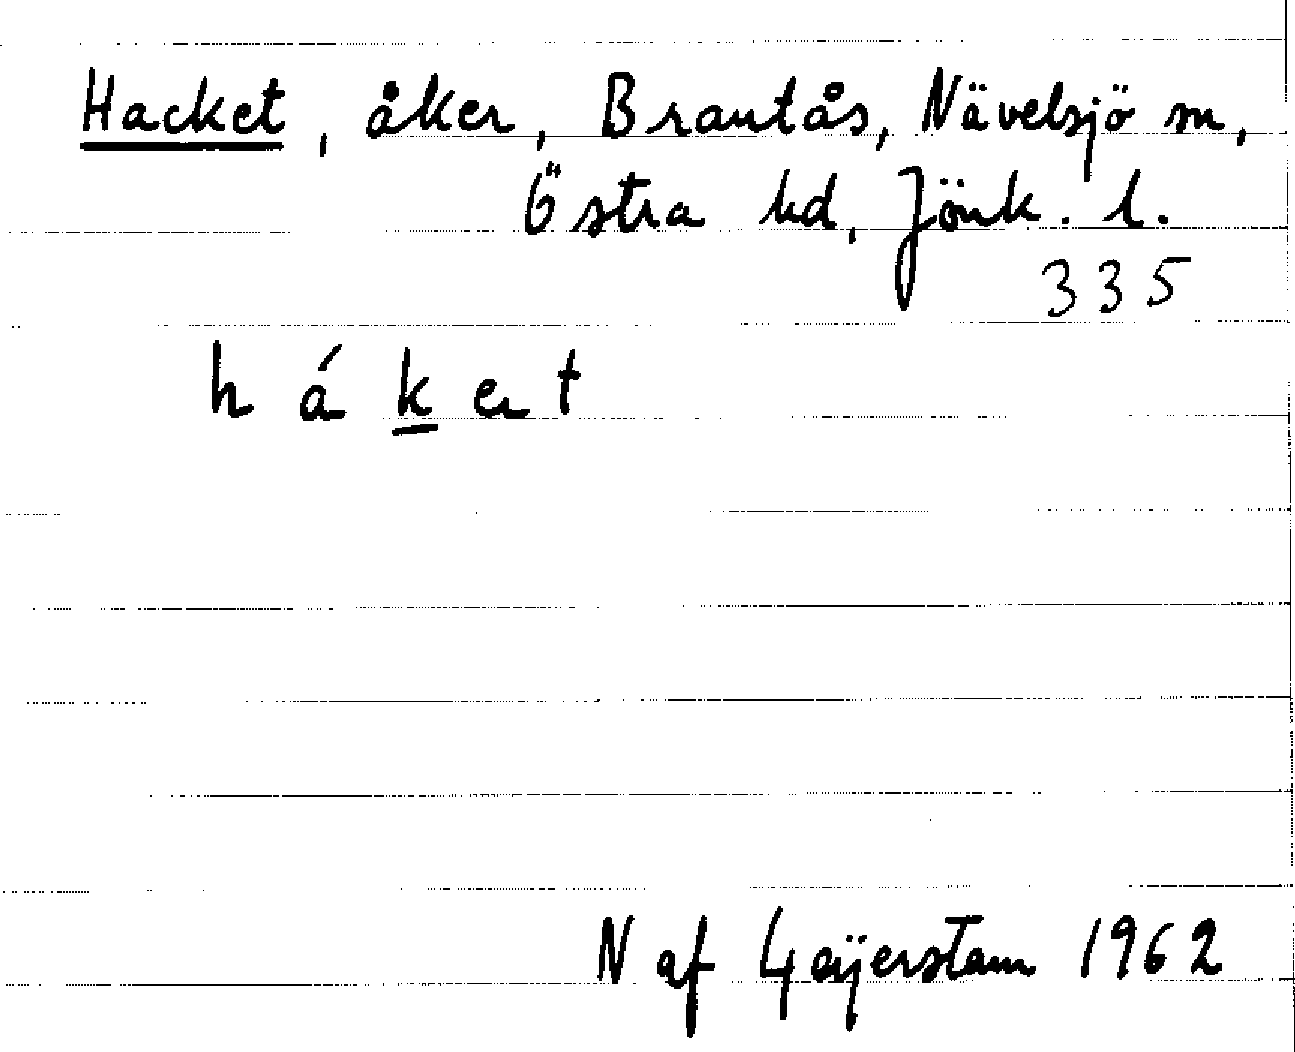 Hacket, åker, Brantås, Nävelsjö sn,
Östra hd, Jönk. l.
335
h á k e r t
N af Geijerstam 1962